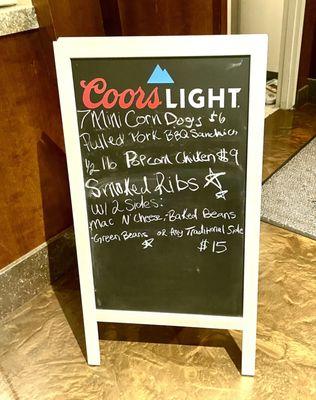 Coors LIGHT
7 Mini Corn Dogs $6
Pulled Pork BBQ Sandwich
1/2 lb Popcorn Chicken $9
Smoked Ribs
W/ 2 Sides:
Mac N' Cheese, Baked Beans
Green Beans or Any Traditional Side
$15